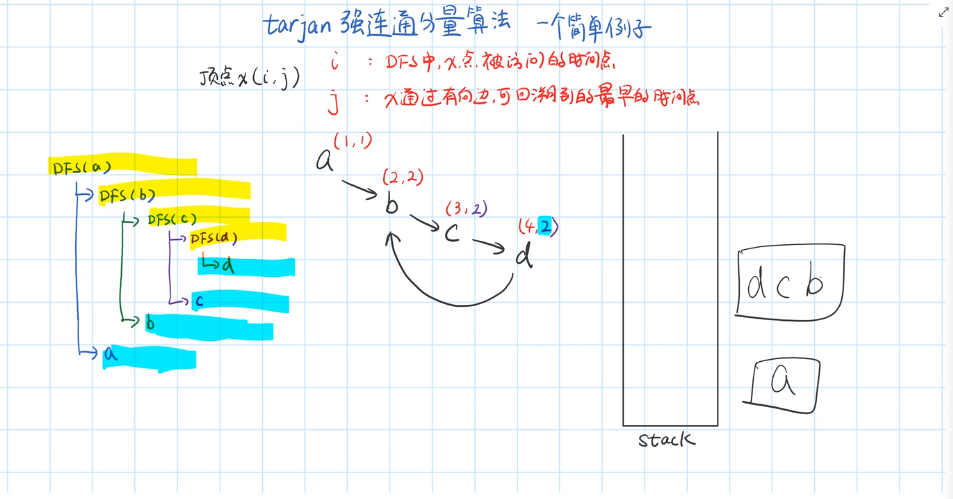 tarjan 强连通分量算法 一个简单例子
顶点x(i,j)
i : DFS中,x点被访问的时间点
j : x通过有向边,可回溯到的最早的时间点
DFS(a)
DFS(b)
DFS(c)
DFS(d)
d
c
b
a
a (1,1)
b (2,2)
c (3,2)
d (4,2)
d c b
a
stack